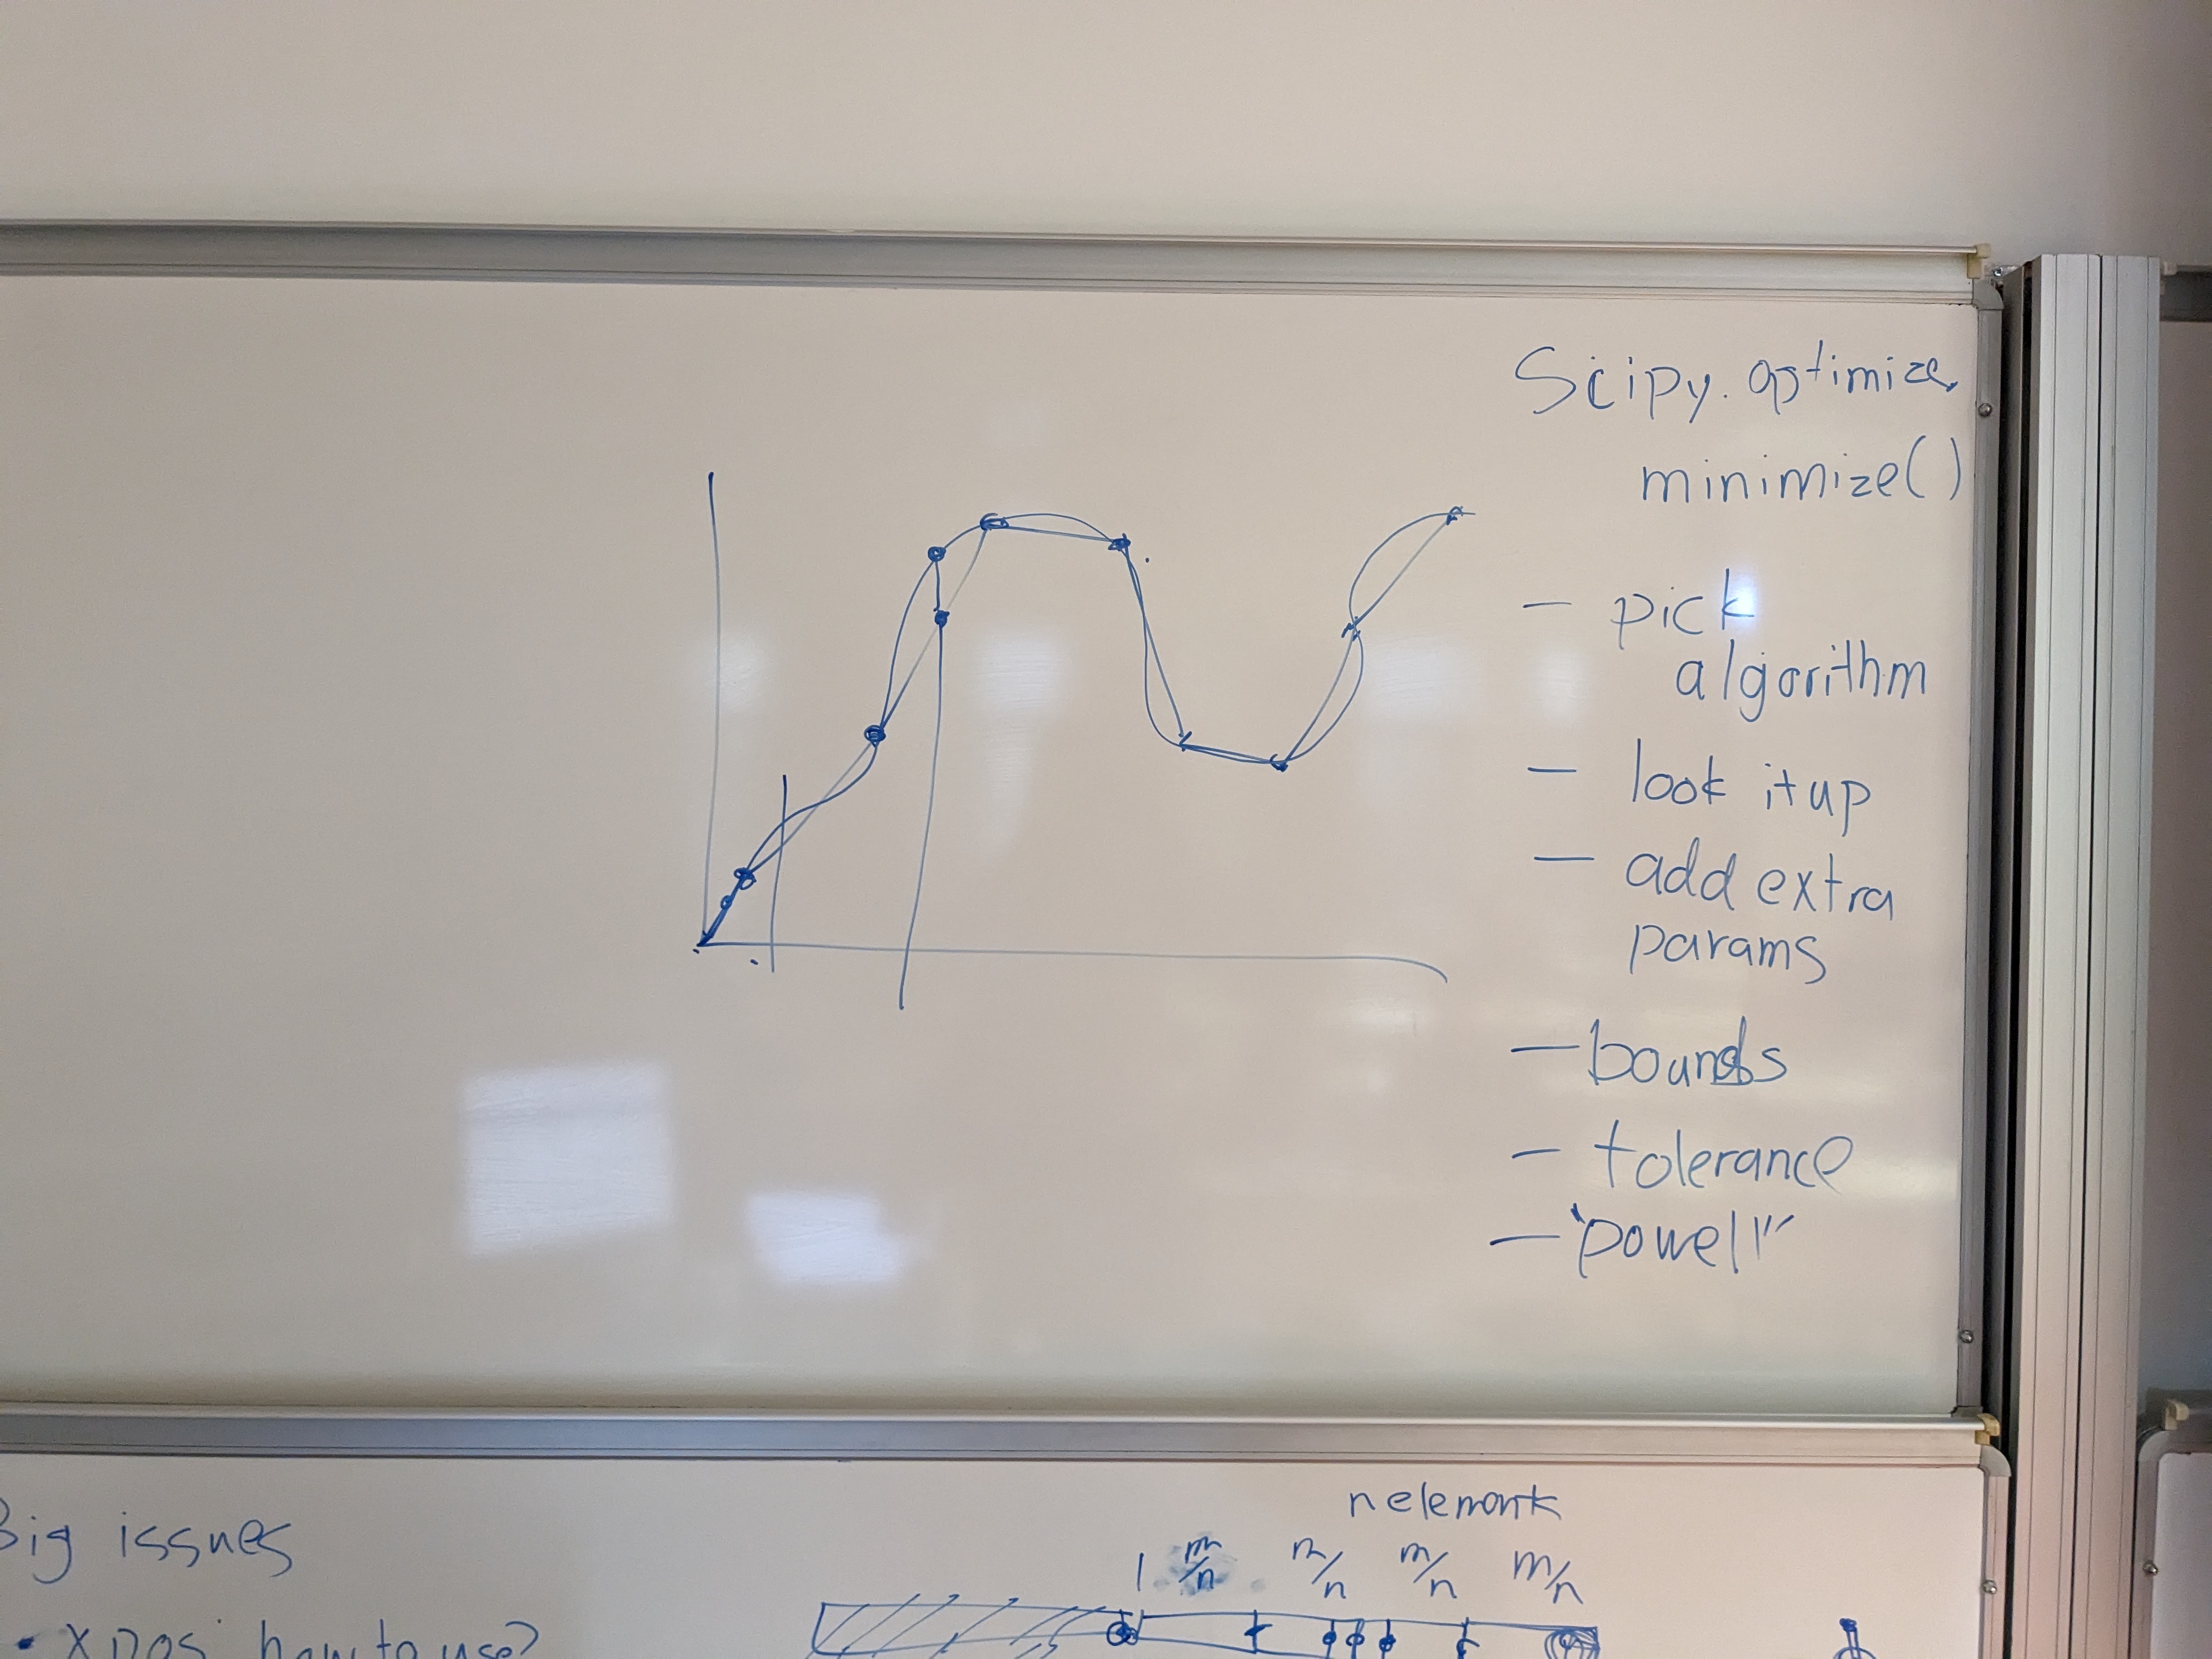 Scipy.optimize.
minimize()
- pick
algorithm
- look it up
- add extra
params
- bounds
- tolerance
- "powell"
Big issues
n elements
1 m/n m/n m/n m/n
how to use?